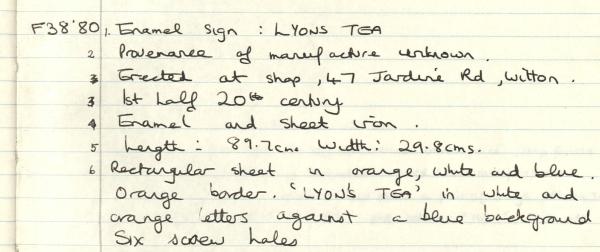 F38'80 1. Enamel sign : LYONS TEA
2 Provenance of manufacture unknown.
3 Erected at shop, 47 Jardine Rd, Witton.
3 1st half 20th century
4 Enamel and sheet iron.
5 Length: 89.7cms Width: 29.8cms.
6 Rectangular sheet in orange, white and blue.
Orange border. 'LYONS TEA' in white and
orange letters against a blue background
Six screw holes